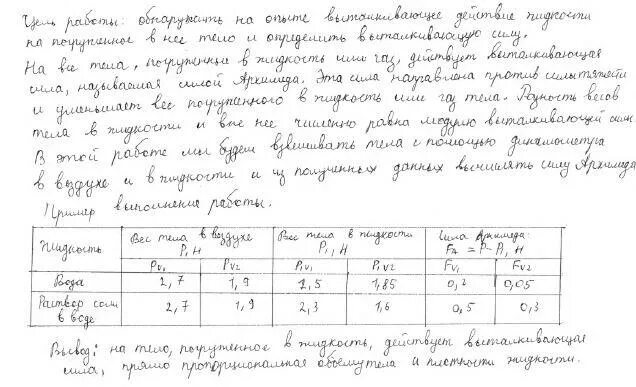 Цель работы: обнаружить на опыте выталкивающее действие жидкости
на погруженное в нее тело и определить выталкивающую силу.
На все тела, погруженные в жидкость или газ, действует выталкивающая
сила, называемая силой Архимеда. Эта сила направлена против силы тяжести
и уменьшает вес погруженного в жидкость или газ тела. Разность весов
тела в жидкости и вне нее численно равна модулю выталкивающей силы.
В этой работе мы будем взвешивать тела с помощью динамометра
в воздухе и в жидкости и из полученных данных вычислять силу Архимеда
Пример выполнения работы.
Жидкость | Вес тела в воздухе P, Н | Вес тела в жидкости P₁, Н | Сила Архимеда: Fₐ = P - P₁, Н
Pv₁ | Pv₂ | P₁v₁ | P₁v₂ | Fv₁ | Fv₂
Вода | 2,7 | 1,9 | 2,5 | 1,85 | 0,2 | 0,05
Раствор соли в воде | 2,7 | 1,9 | 2,3 | 1,6 | 0,5 | 0,3
Вывод: на тело, погруженное в жидкость, действует выталкивающая
сила, прямо пропорциональная объему тела и плотности жидкости.